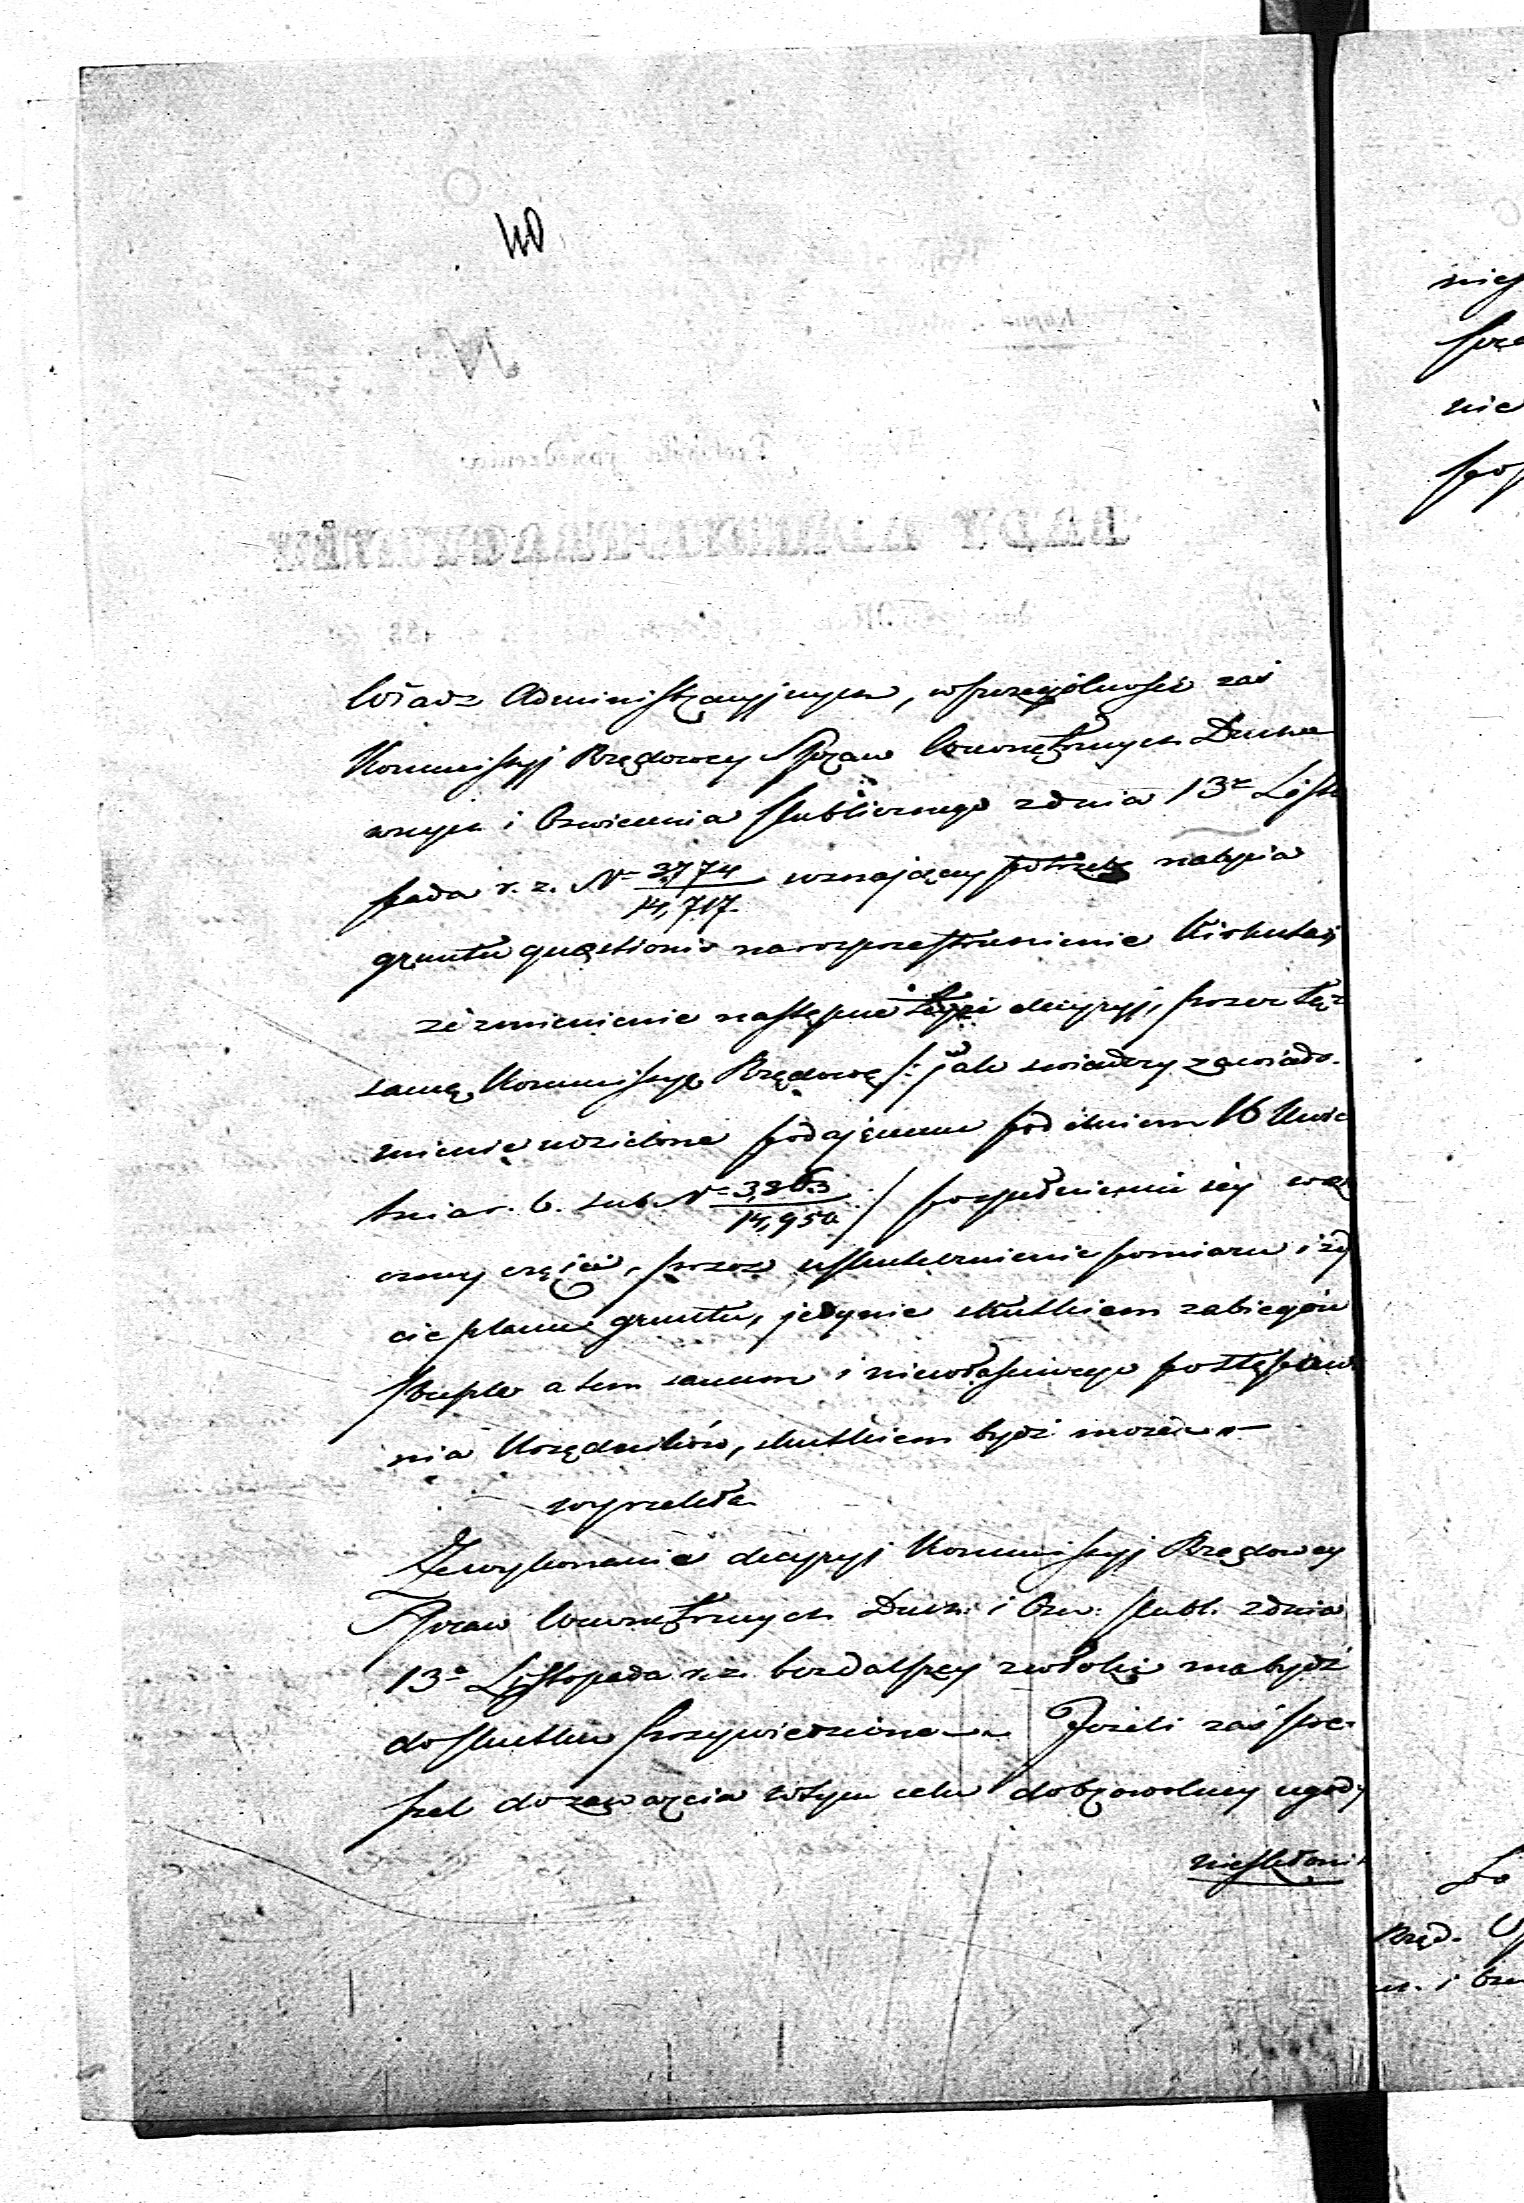 40
Władz Administracyjnych, wszczególności zaś
Kommissyi Rządowey Spraw Wewnętrznych Ducho
wnych i Oświecenia Publicznego zdnia 13º Listo
pada r. z. Nº 3,774/14,717. uznaiącey potrzebę nabycia
gruntu quaestionis na rozprzestrzenienie Kirkuta, i
że zmienienie następne teyże decyzyi, przez tęż
samę Kommissyę Rządową /: jak świadczy zawiado-
mienie udzielone podającemu pod dniem 16 Kwie
tnia r. b. sub Nº 3,863/14,950 :/ po spełnieniu iey wię
kszey części, przez uskutecznienie pomiaru i zdję
cie planu gruntu, jedynie skutkiem zabiegów
a tem samem i niewłaściwego postępowa
nia Urzędników, skutkiem bydź może –
wyrzekła
Że wykonanie decyzyi Kommissyi Rządowey
Spraw Wewnętrznych Duch: i Ośw: Publ: zdnia
13º Listopada r. z. bez dalszey zwłoki ma bydź
do skutku przywiedzione – Jeżeli zaś
do zawarcia w tym celu dobrowolney ugody
nieskłoni
nie
Rząd.
n. i Ośw